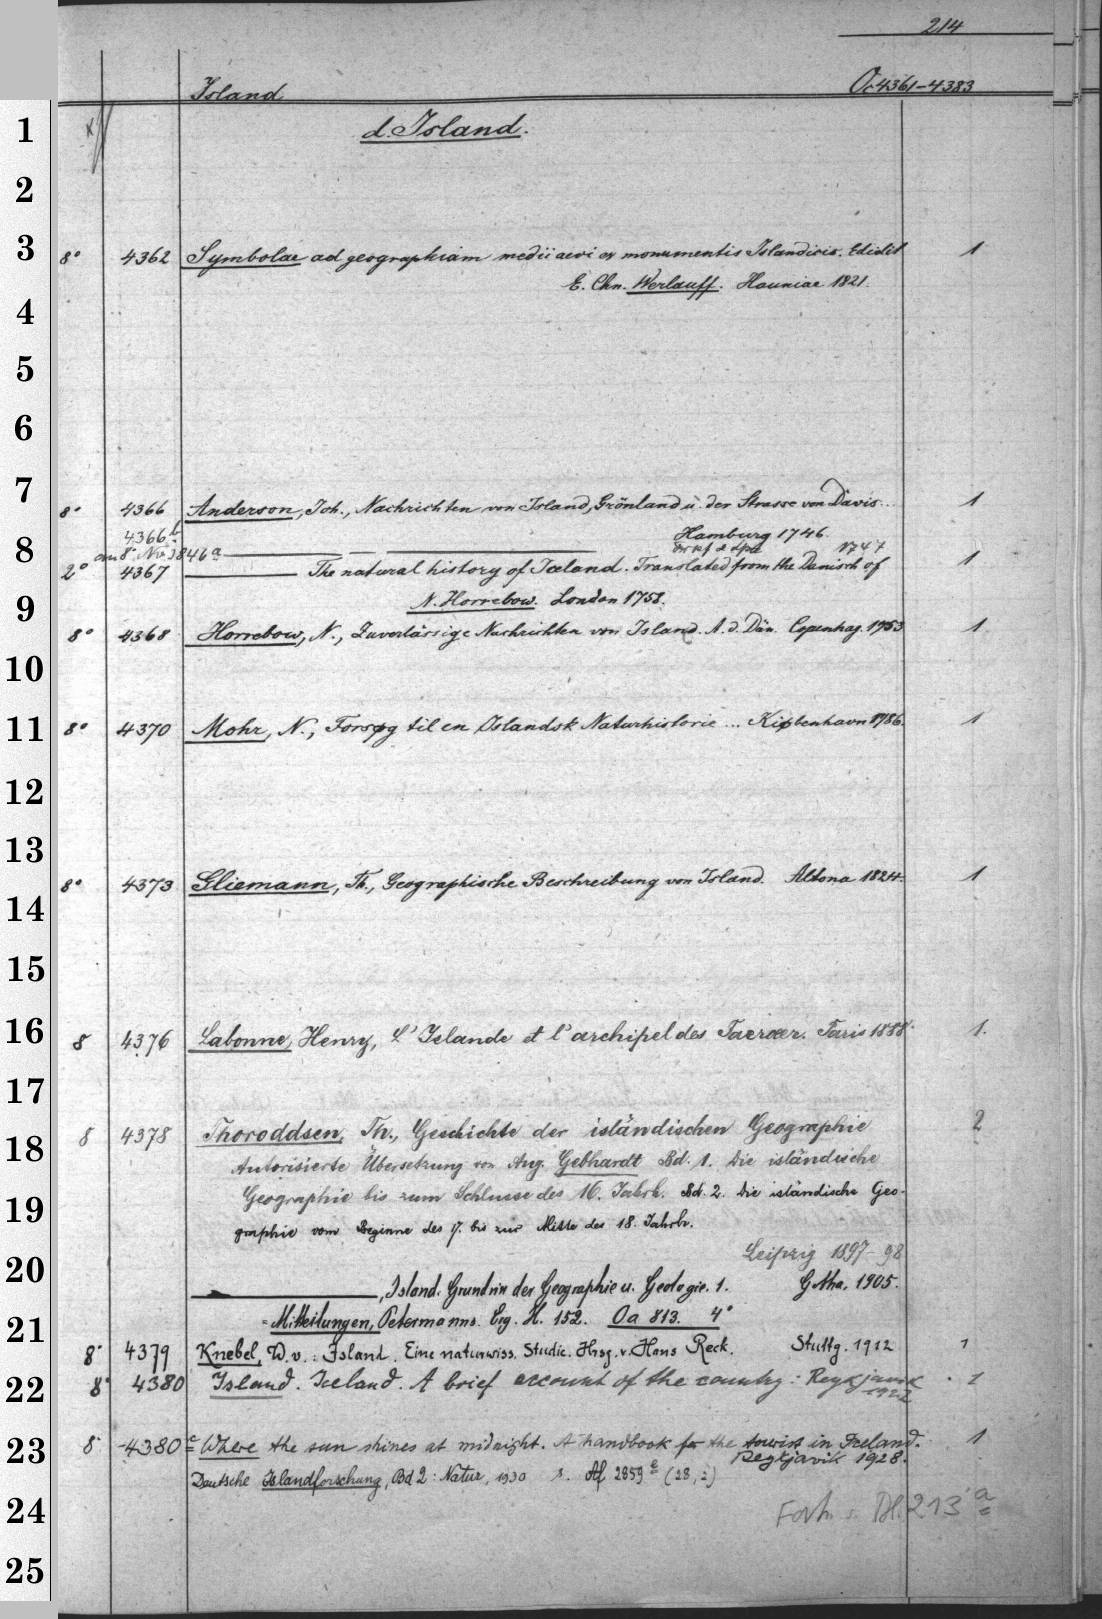 214
Island Oc 4361-4383
1 d. Island.
2
3 8° 4362 Symbolae ad geographiam medii aevi ex monumentis Islandicis. Edidit 1
E. Chn. Werlauff. Hauniae 1821.
4
5
6
7 8° 4366 Anderson, Joh., Nachrichten von Island, Grönland u. der Strasse von Davis... 1
4366 b Hamburg 1746.
8 an 8° Nv 3846 a 1747
2° 4367 The natural history of Iceland. Translated from the Danisch of 1
9 N. Horrebow. London 1758.
8° 4368 Horrebow, N., Zuverlässige Nachrichten von Island. A. d. Dän. Copenhag. 1753 1
10
11 8° 4370 Mohr, N., Forsøg til en Islandsk Naturhistorie ... Kiøbenhavn 1786. 1
12
13
8° 4373 Gliemann, Th., Geographische Beschreibung von Island. Altona 1824. 1
14
15
16 8 4376 Labonne, Henry, L'Islande et l'archipel des Faeroeer. Paris 1888. 1.
17
18 8 4378 Thoroddsen, Th., Geschichte der isländischen Geographie 2
Autorisierte Übersetzung von Aug. Gebhardt Bd. 1. Die isländische
19 Geographie bis zum Schlusse des 16. Jahrh. Bd. 2. Die isländische Geo-
graphie vom Beginne des 17. bis zur Mitte des 18. Jahrh.
Leipzig 1897-98
20 , Island. Grundriss der Geographie u. Geologie. 1. Gotha. 1905.
21 = Mitteilungen, Petermanns. Erg. H. 152. Oa 813. 4°
8° 4379 Knebel, W. v.: Island. Eine naturwiss. Studie. Hrsg. v. Hans Reck. Stuttg. 1912 1
22 8° 4380 Island. Iceland. A brief account of the country: Reykjavik 1
1922
23 8° 4380 c Where the sun shines at midnight. A handbook for the tourist in Iceland. 1
Reykjavik 1928.
Deutsche Islandforschung, Bd 2: Natur, 1930 s. Af 2859 e (28,2)
24 Forts. s. Bl. 213 a
25